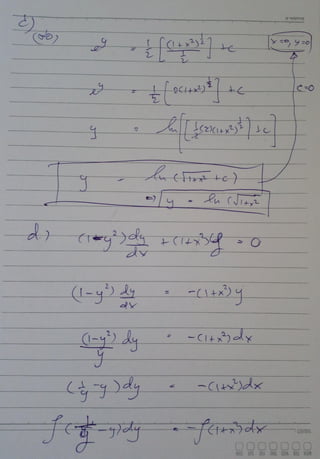 c)
e^y = 1/2 [ (1+x²)^½ / ½ ] + c
x=0, y=0
e^y = 1/2 [ 2(1+x²)^½ ] + c
c=0
y = ln [ [ 1/2 (2)(1+x²)^½ ] + c ]
y = ln (√1+x² + c)
⇒ y = ln (√1+x²
d) (1-y²) dy/dx + (1+x²)y = 0
(1-y²) dy/dx = -(1+x²)y
(1-y²)/y dy = -(1+x²)dx
(1/y - y) dy = -(1+x²)dx
∫ (1/y - y) dy = -∫ (1+x²)dx